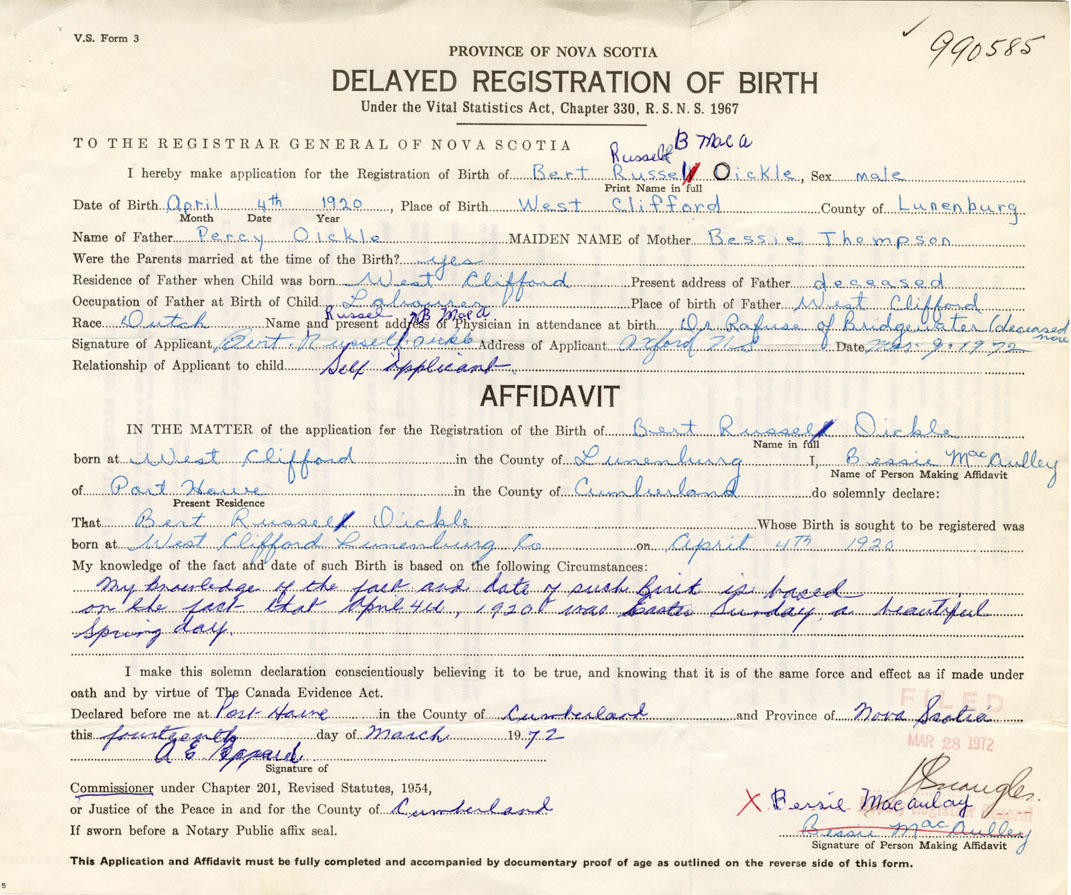 V.S. Form 3
990585
PROVINCE OF NOVA SCOTIA
DELAYED REGISTRATION OF BIRTH
Under the Vital Statistics Act, Chapter 330, R.S.N.S. 1967
TO THE REGISTRAR GENERAL OF NOVA SCOTIA
Russell B Mac A
I hereby make application for the Registration of Birth of Bert Russell Oickle, Sex male
Print Name in full
Date of Birth April 4th 1920, Place of Birth West Clifford County of Lunenburg
Month Date Year
Name of Father Percy Oickle MAIDEN NAME of Mother Bessie Thompson
Were the Parents married at the time of the Birth? yes
Residence of Father when Child was born West Clifford Present address of Father deceased
Occupation of Father at Birth of Child Labourer Place of birth of Father West Clifford
Russel B Mac A
Race Dutch Name and present address of Physician in attendance at birth Dr Rafuse of Bridgewater (deceased now
Signature of Applicant Bert Russell Oickle Address of Applicant Oxford N.S. Date Mar. 9. 1972
Relationship of Applicant to child Self applicant
AFFIDAVIT
IN THE MATTER of the application for the Registration of the Birth of Bert Russell Oickle
Name in full
born at West Clifford in the County of Lunenburg I, Bessie MacAulley
Name of Person Making Affidavit
of Port Howe in the County of Cumberland do solemnly declare:
Present Residence
That Bert Russell Oickle Whose Birth is sought to be registered was
born at West Clifford Lunenburg Co on April 4TH 1920
My knowledge of the fact and date of such Birth is based on the following Circumstances:
My knowledge of the fact and date of such Birth is based
on the fact that April 4th, 1920 was Easter Sunday, a beautiful
Spring day.
I make this solemn declaration conscientiously believing it to be true, and knowing that it is of the same force and effect as if made under
oath and by virtue of The Canada Evidence Act.
FILED
Declared before me at Port Howe in the County of Cumberland and Province of Nova Scotia
this fourteenth day of March 1972
MAR 28 1972
A E
Signature of
Commissioner under Chapter 201, Revised Statutes, 1954,
X Bessie Macaulay
or Justice of the Peace in and for the County of Cumberland
Bessie MacAulley
If sworn before a Notary Public affix seal.
Signature of Person Making Affidavit
This Application and Affidavit must be fully completed and accompanied by documentary proof of age as outlined on the reverse side of this form.
5